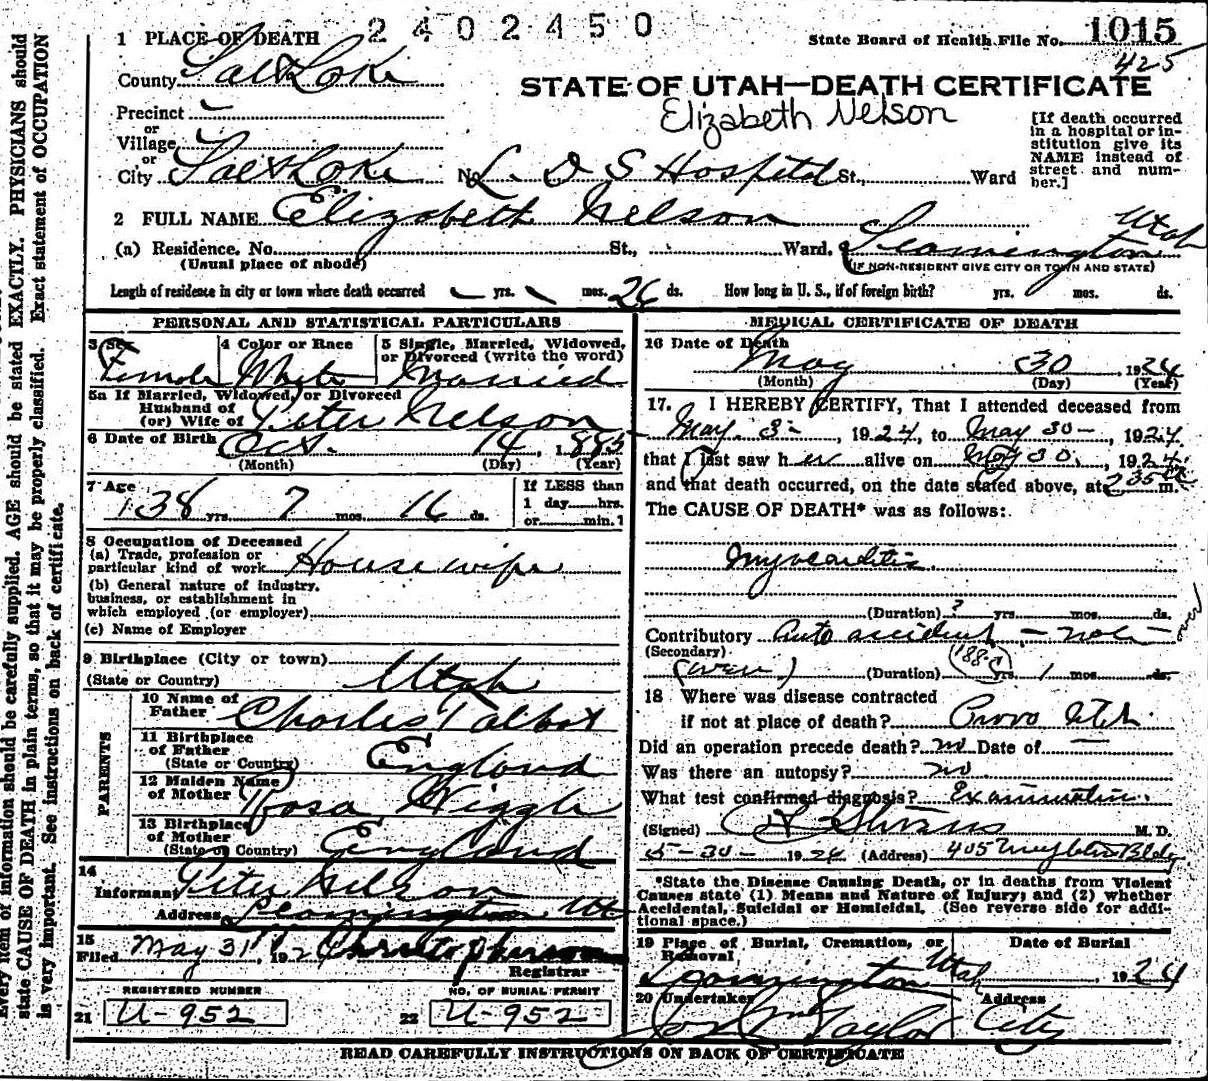 2402450
State Board of Health File No. 1015
425
1 PLACE OF DEATH
County Salt Lake
STATE OF UTAH—DEATH CERTIFICATE
Elizabeth Nelson
Precinct
or
Village
or
City Salt Lake No. L. D S Hospital St., Ward
[If death occurred
in a hospital or in-
stitution give its
NAME instead of
street and num-
ber.]
2 FULL NAME Elizabeth Nelson
(a) Residence. No. St., Ward, Leamington Utah
(Usual place of abode) (IF NON-RESIDENT GIVE CITY OR TOWN AND STATE)
Length of residence in city or town where death occurred yrs. mos. 26 ds. How long in U. S., if of foreign birth? yrs. mos. ds.
PERSONAL AND STATISTICAL PARTICULARS
3 Sex 4 Color or Race 5 Single, Married, Widowed,
or Divorced (write the word)
Female White Married
5a If Married, Widowed, or Divorced
Husband of
(or) Wife of Peter Nelson
6 Date of Birth Oct. 14, 1885
(Month) (Day) (Year)
7 Age If LESS than
38 yrs. 7 mos. 16 ds. 1 day hrs.
or min. ?
8 Occupation of Deceased
(a) Trade, profession or
particular kind of work Housewife
(b) General nature of industry,
business, or establishment in
which employed (or employer)
(c) Name of Employer
9 Birthplace (City or town)
(State or Country) Utah
PARENTS
10 Name of
Father Charles Talbot
11 Birthplace
of Father
(State or Country) England
12 Maiden Name
of Mother Rosa
13 Birthplace
of Mother
(State or Country) England
14
Informant Peter Nelson
Address Leamington Ut
15
Filed May 31, 192
Registrar
REGISTERED NUMBER NO. OF BURIAL PERMIT
21 U-952 22 U-952
MEDICAL CERTIFICATE OF DEATH
16 Date of Death
May 30, 1924
(Month) (Day) (Year)
17. I HEREBY CERTIFY, That I attended deceased from
May 3-, 1924, to May 30-, 1924.
that I last saw her alive on May 30, 1924.
and that death occurred, on the date stated above, at 2 35 a m.
The CAUSE OF DEATH* was as follows:
Myocarditis.
(Duration) ? yrs. mos. ds.
Contributory Auto accident - over
(Secondary)
(over) (Duration) 188-c yrs. 1 mos. ds.
18 Where was disease contracted
if not at place of death? Provo Utah.
Did an operation precede death? no Date of —
Was there an autopsy? no.
What test confirmed diagnosis? Examination.
(Signed) M. D.
5-30-1924 (Address) 405 Bldg
*State the Disease Causing Death, or in deaths from Violent
Causes state (1) Means and Nature of Injury; and (2) whether
Accidental, Suicidal or Homicidal. (See reverse side for addi-
tional space.)
19 Place of Burial, Cremation, or Date of Burial
Removal
Leamington Utah 1924
20 Undertaker Address
Jos Wm Taylor City
READ CAREFULLY INSTRUCTIONS ON BACK OF CERTIFICATE
Every item of information should be carefully supplied. AGE should be stated EXACTLY. PHYSICIANS should
state CAUSE OF DEATH in plain terms, so that it may be properly classified. Exact statement of OCCUPATION
is very important. See instructions on back of certificate.